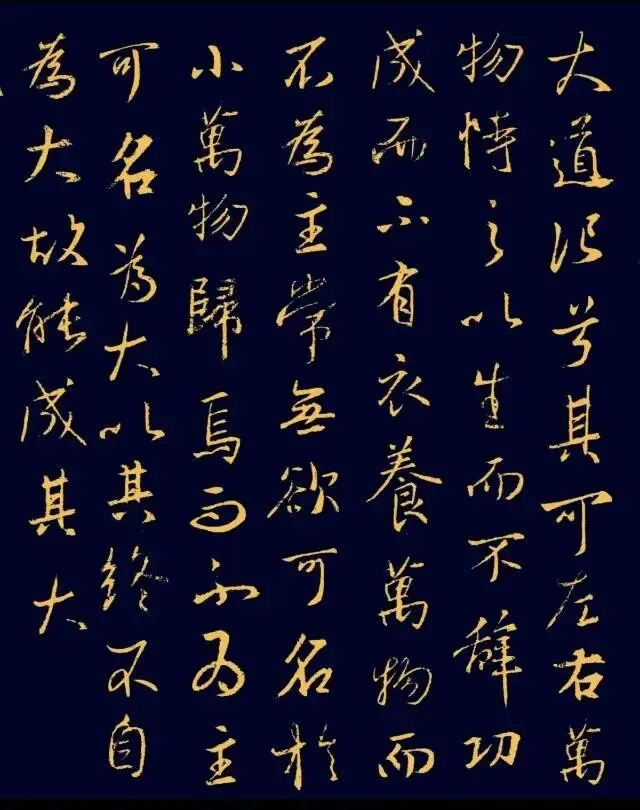 大道汎兮其可左右萬
物恃之以生而不辭功
成而不有衣養萬物而
不為主常無欲可名於
小萬物歸焉而不為主
可名為大以其終不自
為大故能成其大